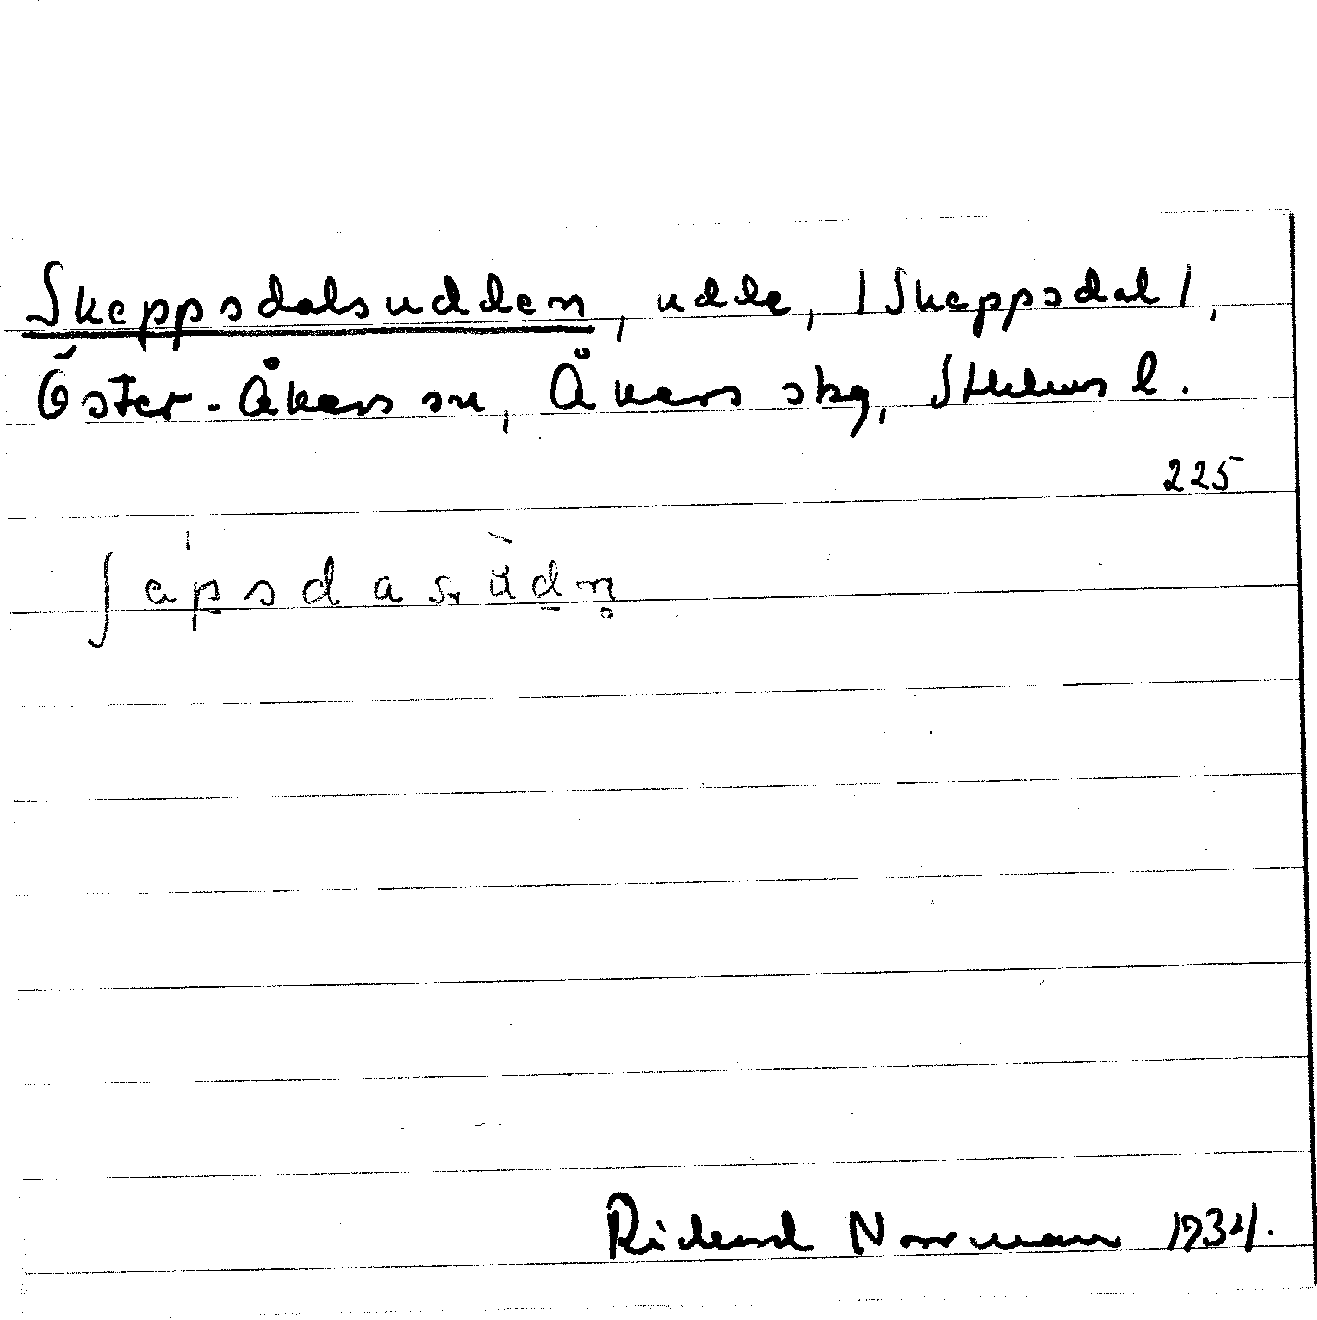 Skeppsdalsudden, udde, /Skeppsdal/,
Öster-Åkers sn, Åkers skg, Sthlms l.
225
ʃep̀sdasùdn̥
Rickard Norrman 1934.